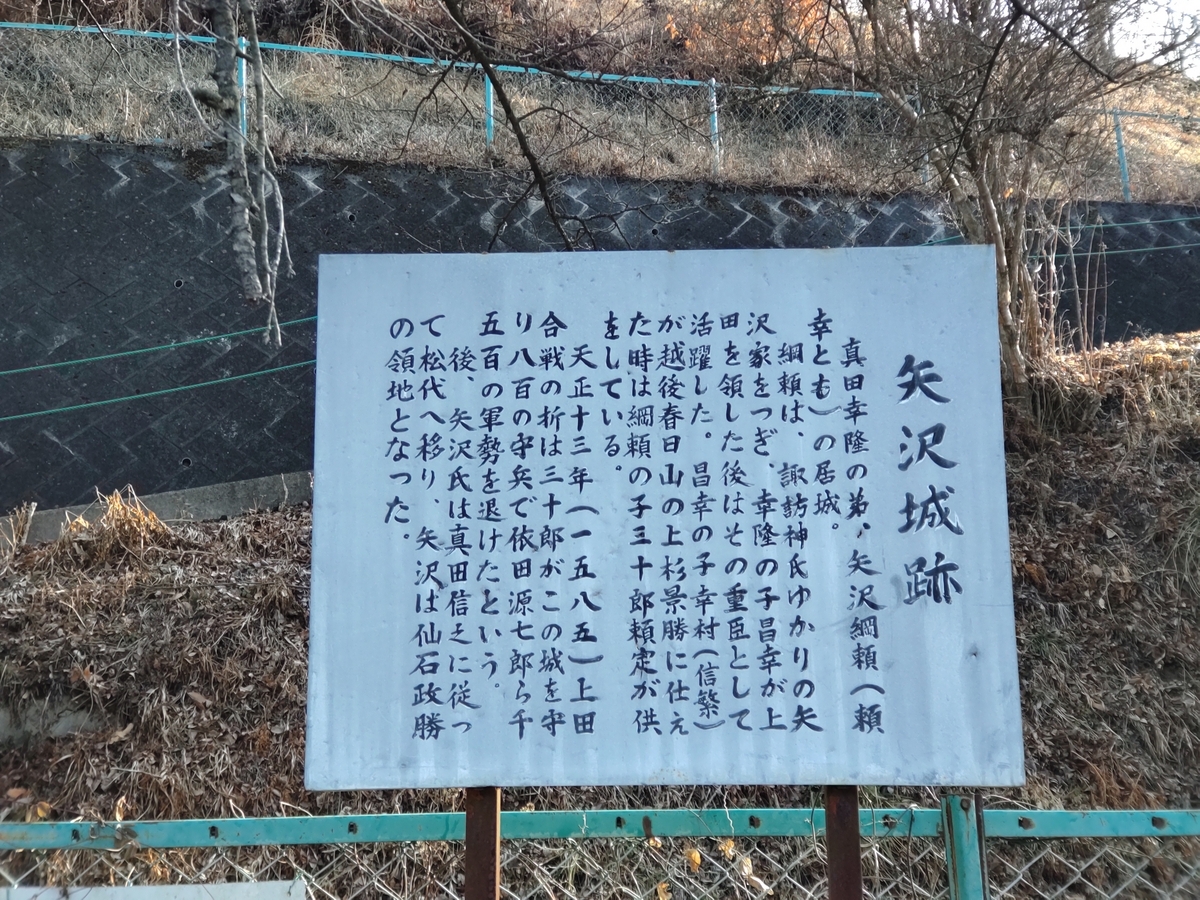 矢沢城跡
真田幸隆の弟、矢沢綱頼(頼
幸とも)の居城。
綱頼は、諏訪神氏ゆかりの矢
沢家をつぎ、幸隆の子昌幸が上
田を領した後はその重臣として
活躍した。昌幸の子幸村(信繁)
が越後春日山の上杉景勝に仕え
た時は綱頼の子三十郎頼定が供
をしている。
天正十三年(一五八五)上田
合戦の折は三十郎がこの城を守
り八百の守兵で依田源七郎ら千
五百の軍勢を退けたという。
後、矢沢氏は真田信之に従っ
て松代へ移り、矢沢は仙石政勝
の領地となった。